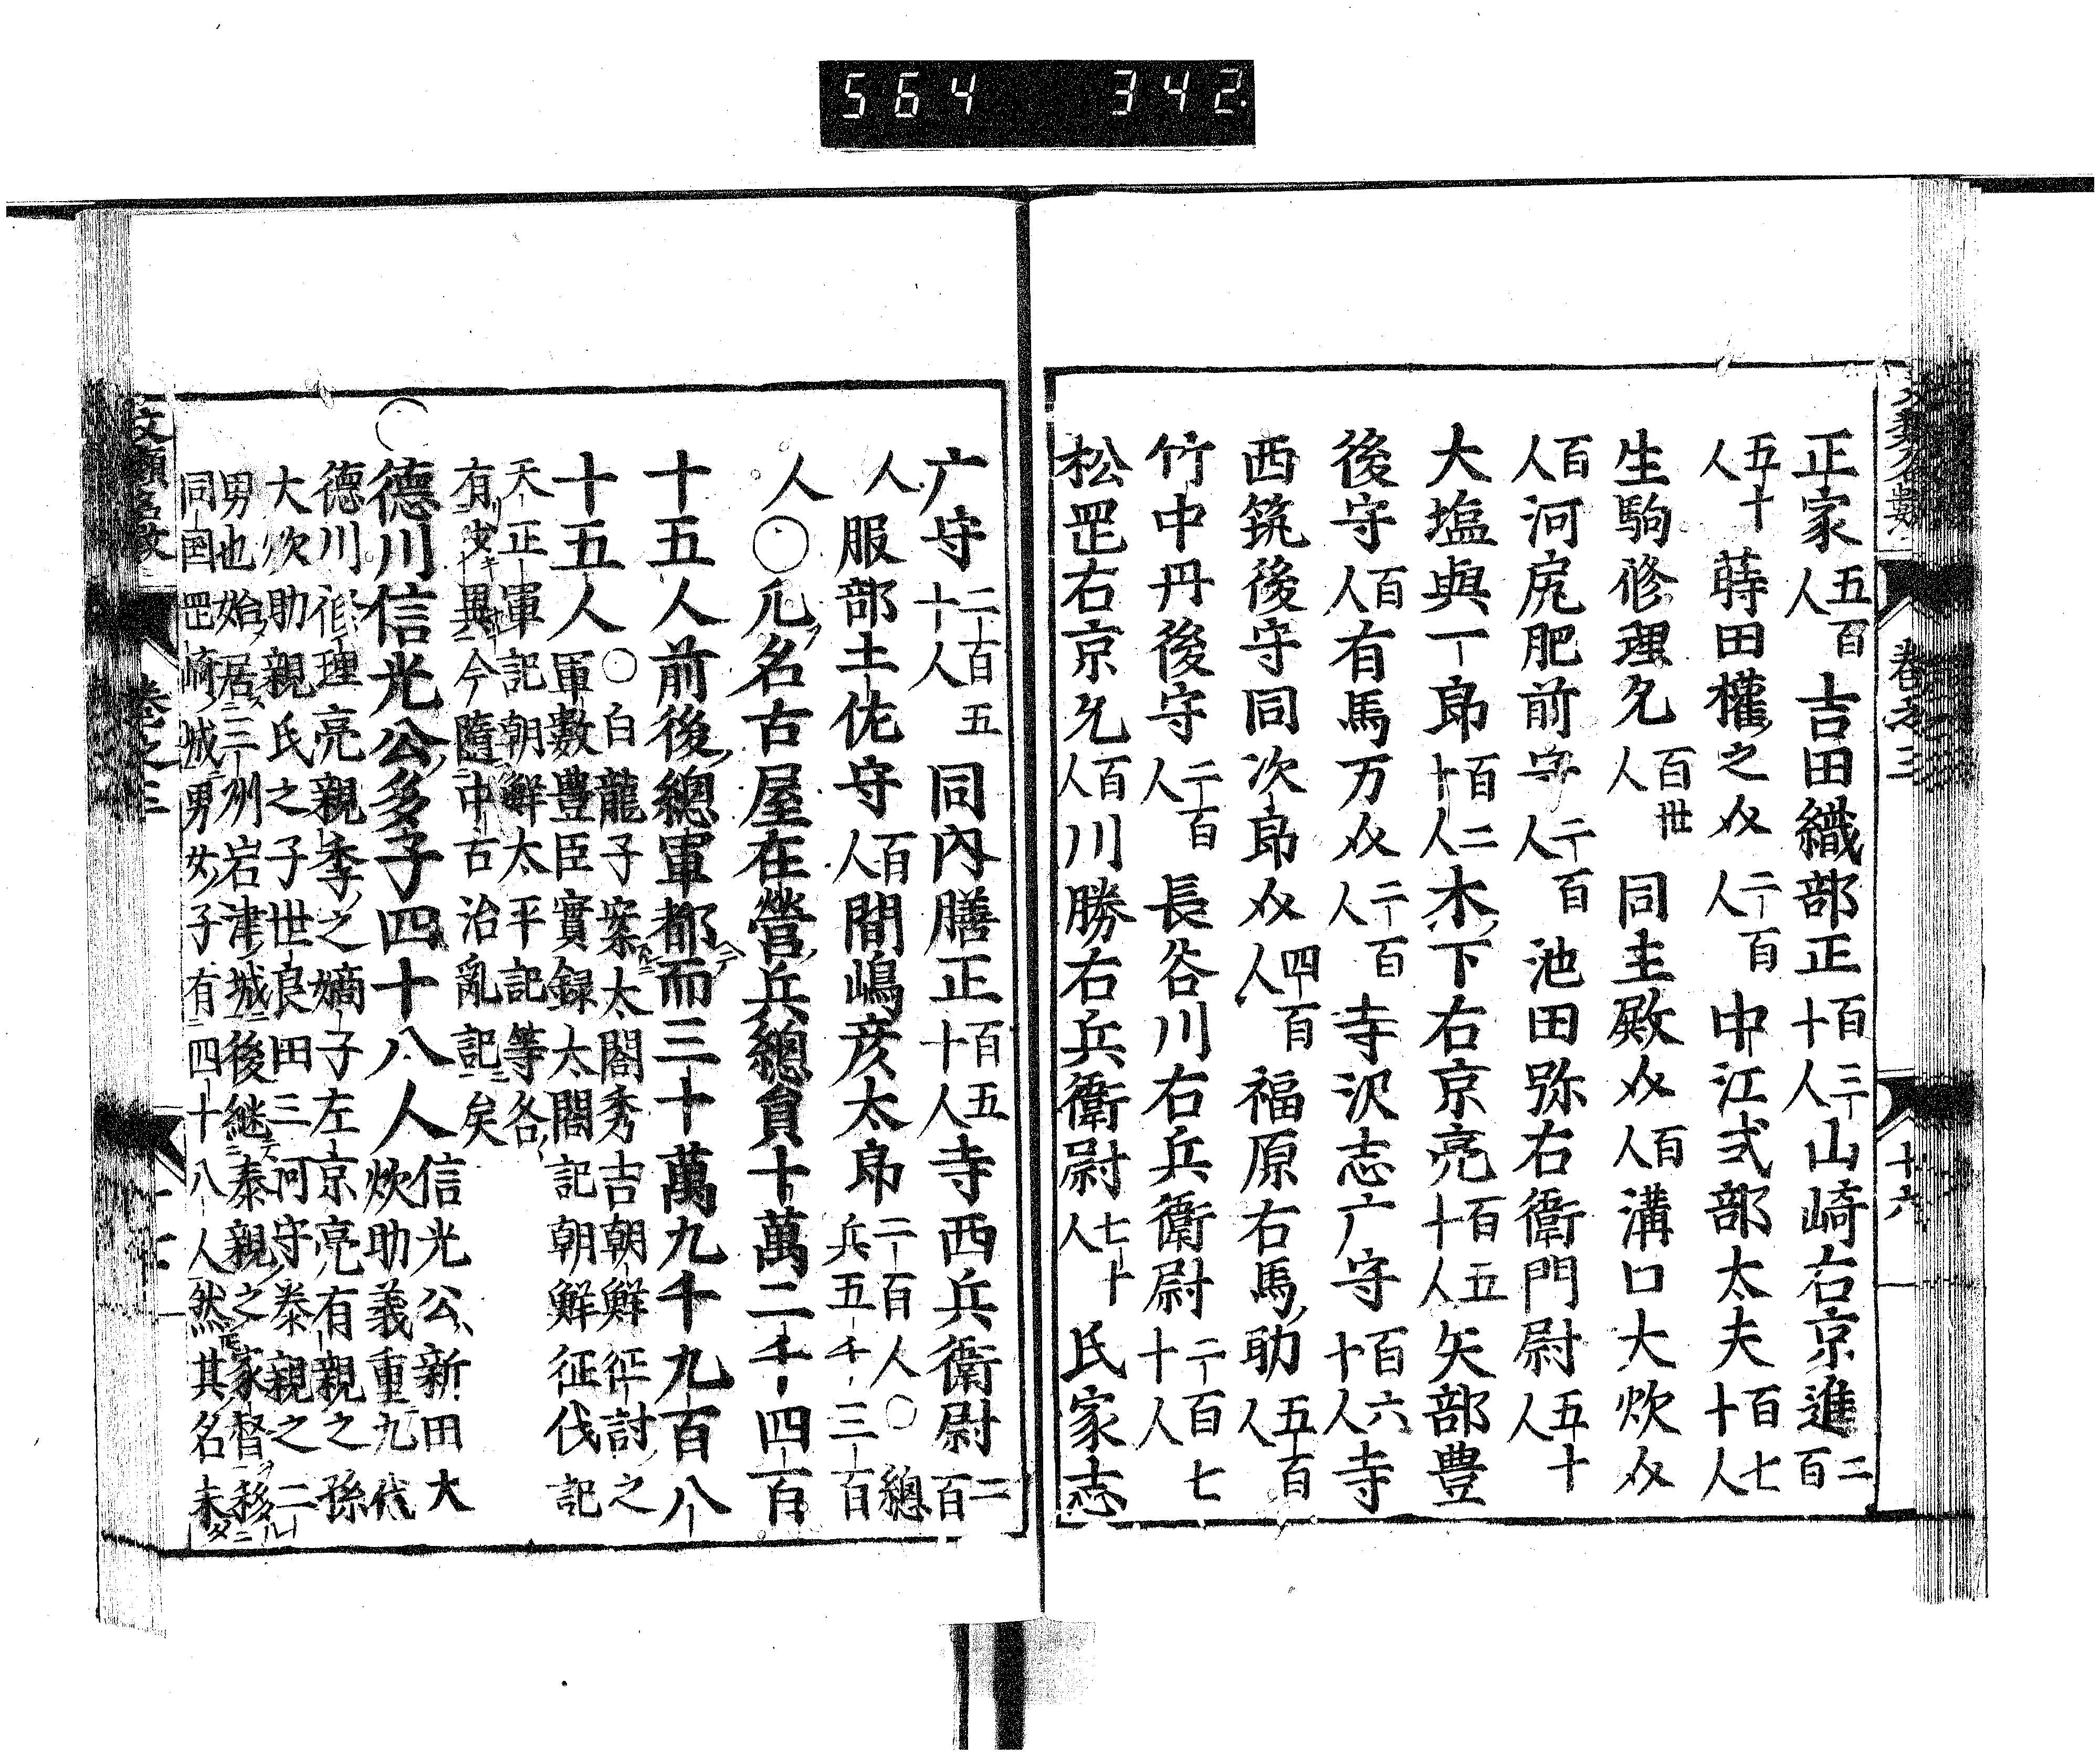 564 342
正家五百人 吉田織部正百三十人 山崎右京進二百
五十人 蒔田權之𠆢二百人 中江式部太夫百七十人
生駒修理允百卅人 同主殿𠆢百人 溝口大炊𠆢
百人 河尻肥前守二百人 池田弥右衛門尉五十人
大塩與一郎百二十人 木下右京亮百五十人 矢部豊
後守百人 有馬万𠆢二百人 寺沢志广守百六十人 寺
西筑後守同次郎𠆢四百人 福原右馬助五百人
竹中丹後守二百人 長谷川右兵衛尉二百七十人
松罡右京允百人 川勝右兵衛尉七十人 氏家志
广守二百五十人 同内膳正百五十人 寺西兵衛尉二百
人 服部土佐守百人 間嶋彦太郎二百人○總兵五千三百
人○凡名古屋在營兵總員十萬二千四百
十五人前後總軍都而三十萬九千九百八
十五人 ○白龍子案太閤秀吉朝鮮征討之
軍數豊臣實録太閤記朝鮮征伐記
天正軍記朝鮮太平記等各
有少異今隨中古治亂記矣
○德川信光公多子四十八人 信光公新田大
炊助義重九代
德川修理亮親季之嫡子左京亮有親之孫
大炊助親氏之子世良田三河守泰親之二
男也始居三州岩津城後継泰親之家督移
同国罡崎城男女子有四十八人然其名未
卷之三
十六